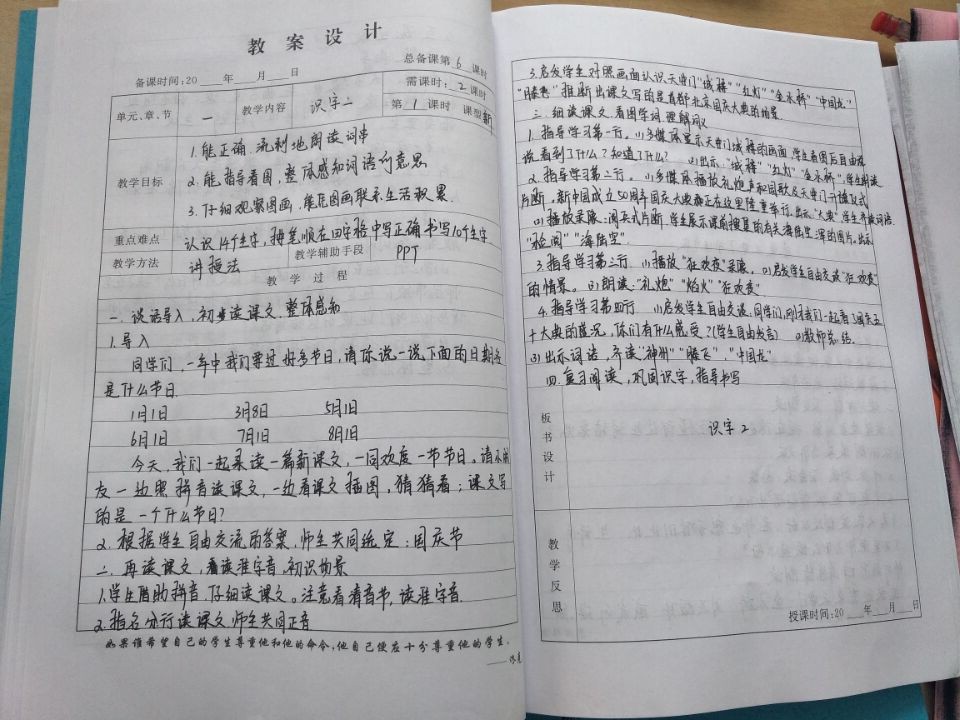 教案设计
总备课第6课时
备课时间:20 年 月 日
需课时:2课时
单元、章、节 一 教学内容 识字二 第1课时 课型新
教学目标
1.能正确.流利地朗读词串
2.能指导看图,整体感知词语的意思
3.仔细观察图画,集图画联系生活积累.
重点难点 认识14个生字,按笔顺在田字格中写正确书写10个生字
教学方法 讲授法 教学辅助手段 PPT
教学过程
一.谈话导入,初步读课文.整体感知
1.导入
同学们,一年中我们要过好多节日,请你说一说下面的日期各
是什么节日.
1月1日 3月8日 5月1日
6月1日 7月1日 8月1日
今天,我们一起来读一篇新课文,一同欢度一节节日。请小朋
友一边照拼音读课文,一边看课文插图,猜猜看;课文写
的是一个什么节日?
2.根据学生自由交流的答案.师生共同统定:国庆节
二.再读课文,看读准字音.初识物景
1.学生借助拼音.仔细读课文。注意看清音节,读准字音.
2.指名分行读课文.师生共同正音
如果谁希望自己的学生尊重他和他的命令,他自己便应十分尊重他的学生。
3.启发学生对照画面认识天安门"城楼""红灯""金水桥""中国龙"
"腾飞"推断出课文写的是首都北京国庆大典的情景.
三.细读课文.看图学词.理解词义
1.指导学习第一行。(1)多媒体显示天安门城楼的画面.学生看图后自由说
说看到了什么?知道了什么? (2)出示."城楼""红灯""金水桥".学生朗读
2.指导学习第二行。(1)多媒体播放礼炮声和国歌及天安门升旗仪式
片断.新中国成立50周年国庆大典就正在这里隆重举行.出示"大典".学生齐读词语.
(2)播放录像:阅兵式片断.学生展示课前搜集的有关海陆空军的图片.出示
"检阅""海陆空".
3.指导学习第三行.(1)播放"狂欢夜"录像. (2)启发学生自由交谈"狂欢夜"
的情景. (3)朗读:"礼炮""焰火""狂欢夜"
4.指导学习第四行 (1)启发学生自由交谈.同学们,刚才我们一起看了国庆五
十大典的盛况,你们有什么感受?(学生自由发言) (2)教师总结.
(3)出示词语.齐读"神州""腾飞","中国龙"
四.复习阅读,巩固识字,指导书写
板书设计
识字2
教学反思
授课时间:20 年 月 日